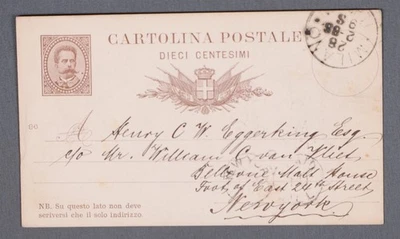 CARTOLINA POSTALE
DIECI CENTESIMI
MILANO
28
A Henry C. W. Eggerking Esq.
c/o Mr. William C. van Vliet
Malt House
Foot of East 24th Street
Newyork
NB. Su questo lato non deve
scriversi che il solo indirizzo